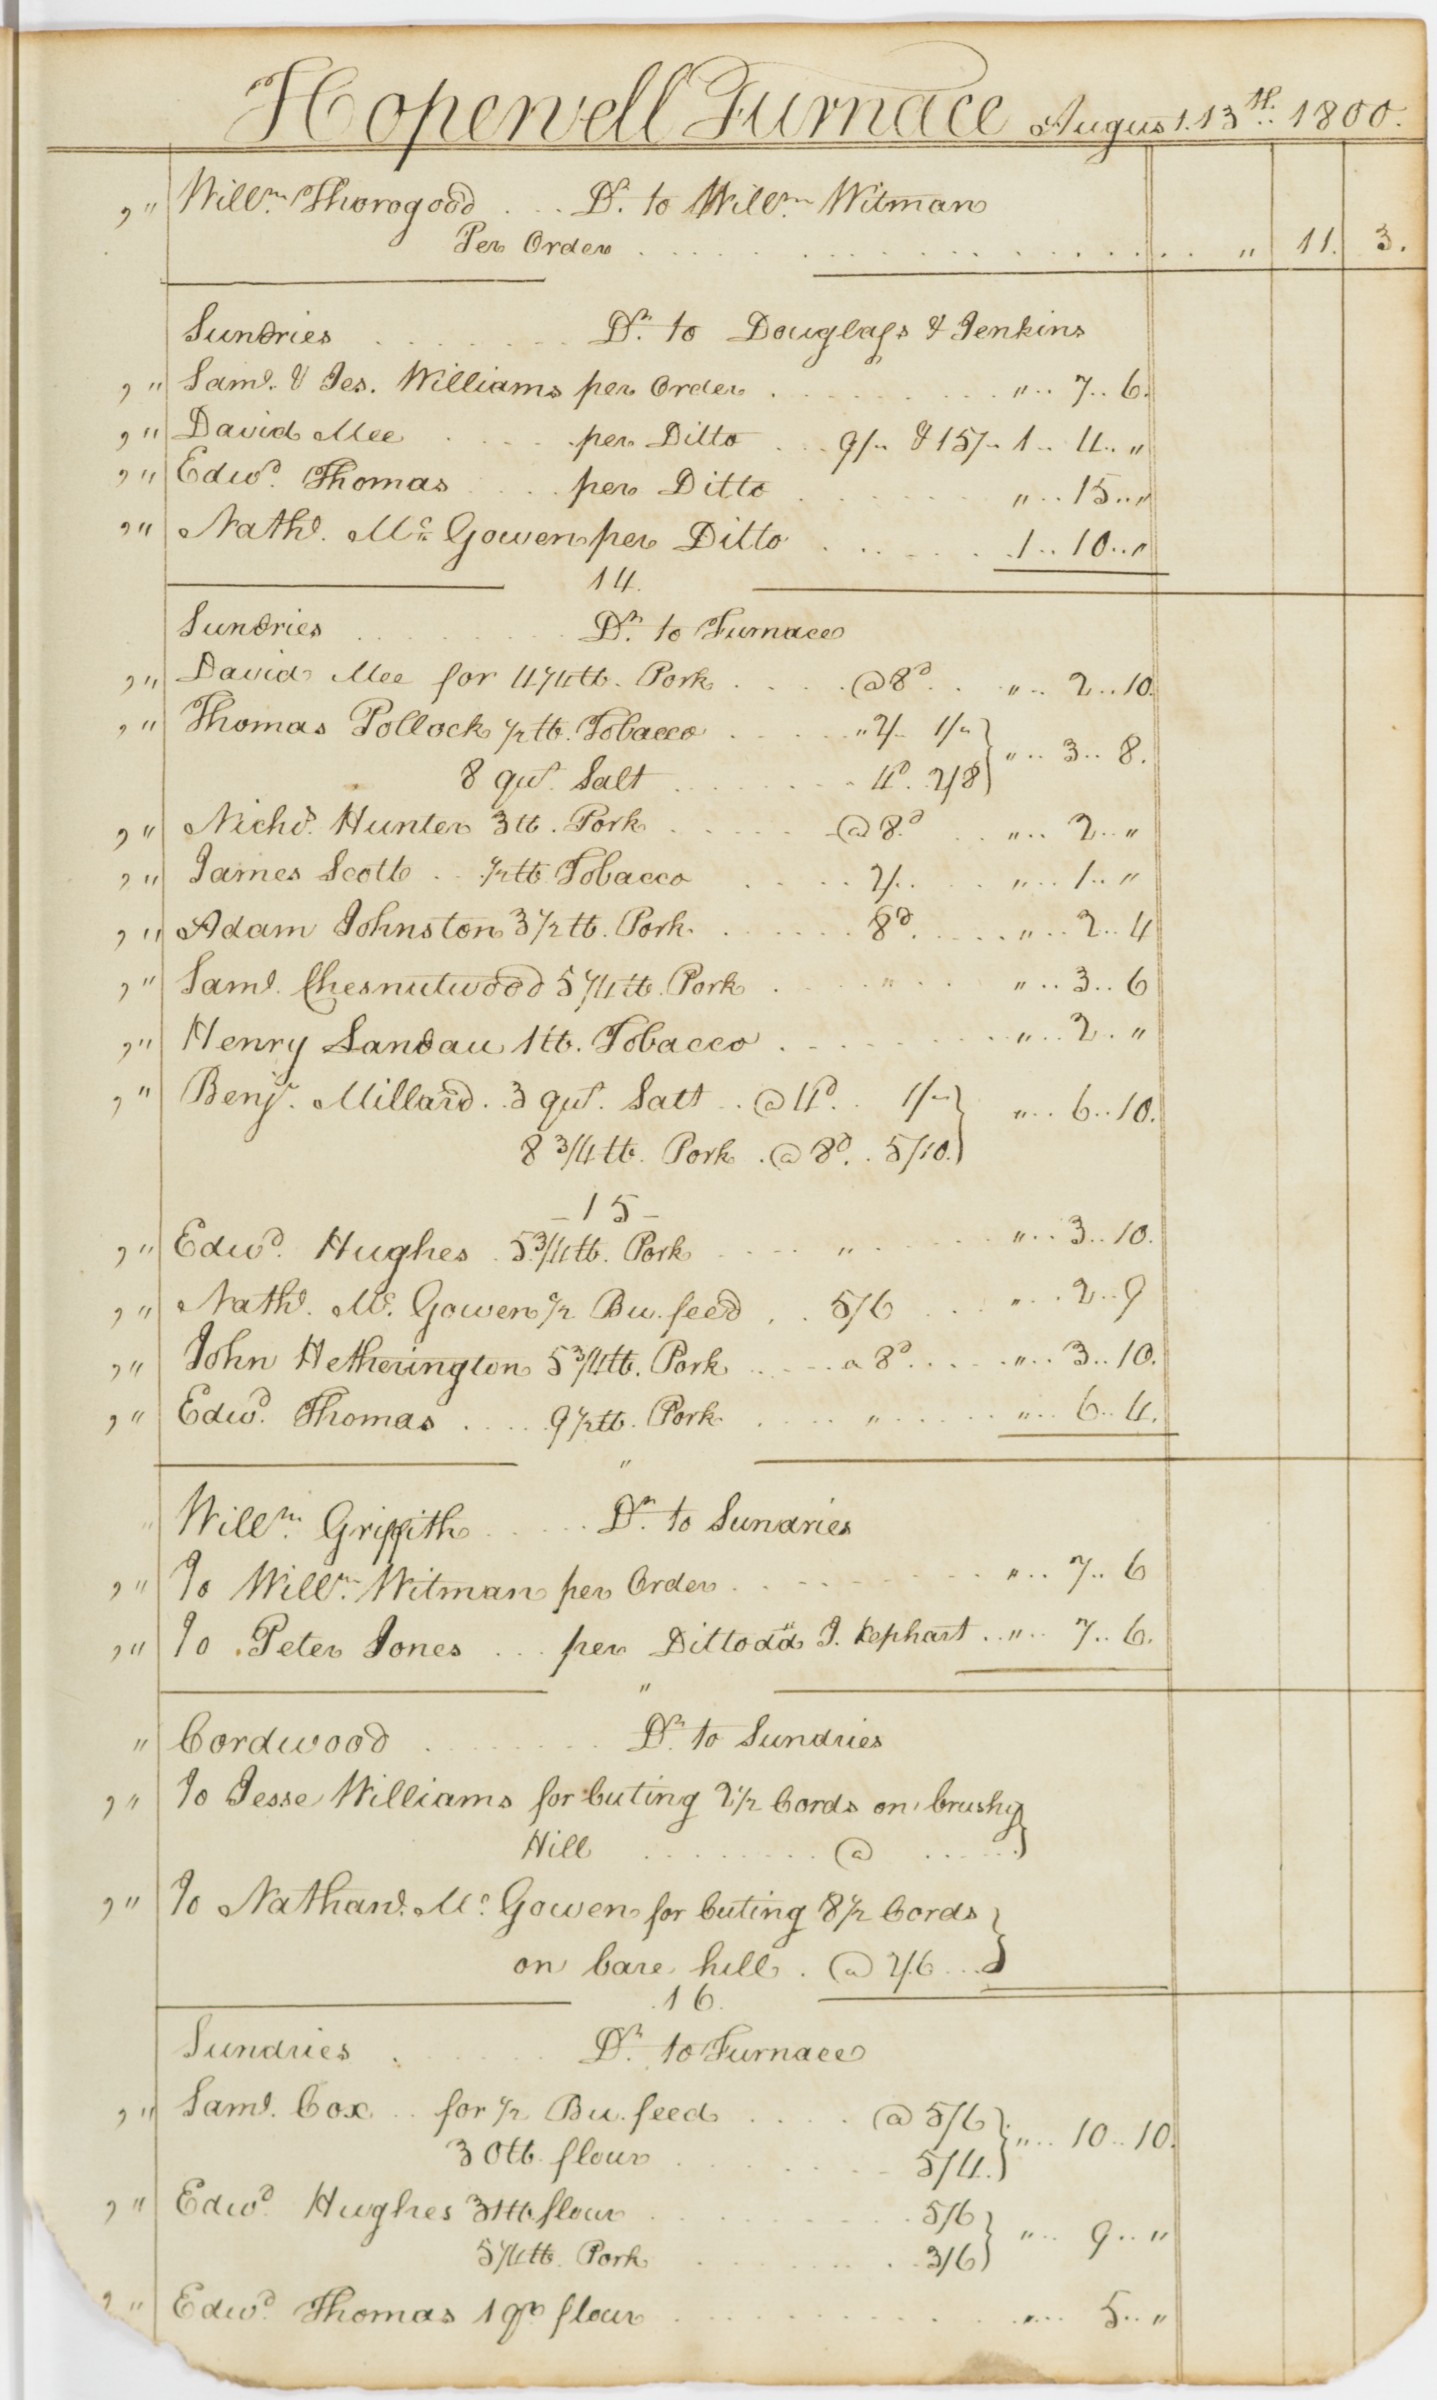 Hopewell Furnace August 13th 1800.
,," Willm Thorogood . . . Dr. to Willm Witman
Per Order . . . . . . " 11. 3.
Sundries . . . . . . Dr. to Douglass & Jenkins
,," Saml. & Jes. Williams per Order . . . . . . " .. 7 .. 6.
,," David Mee . . . . per Ditto . . . 9/- & 15/- 1 .. 4 .. "
,," Edwd. Thomas . . . per Ditto . . . . . . " .. 15 .. "
,," Nathl. Mc Gowen per Ditto . . . . . . 1 .. 10 .. "
14.
Sundries . . . . . . Dr. to Furnace
,," David Mee for 4 1/4 tb. Pork . . . . @ 8d. . . " .. 2 .. 10.
,," Thomas Pollock 1/2 tb. Tobacco . . . . " 2/- 1/- } " .. 3 .. 8.
8 qts. Salt . . . . . . 4d. 2/8 }
,," Nichs. Hunter 3 tb. Pork . . . . @ 8.d . . " .. 2 .. "
,," James Scott . . 1/2 tb Tobacco . . . . 2/. . . . " .. 1 .. "
,," Adam Johnston 3 1/2 tb. Pork . . . . . . 8d. . . . . " .. 2 .. 4
,," Saml. Chesnutwood 5 1/4 tb. Pork . . . . " . . " .. 3 .. 6
,," Henry Landau 1 tb. Tobacco . . . . . . " .. 2 .. "
,," Benjn. Millard . . 3 qts. Salt . . @ 4d. . 1/- } " .. 6 .. 10.
8 3/4 tb. Pork . @ 8d. . 5/10. }
- 15 -
,," Edwd. Hughes . 5 3/4 tb. Pork . . . . " . . . . " .. 3 .. 10.
,," Nathl. Mc. Gowen 1/2 Bu. feed . . 5/6 . . . " .. 2 .. 9
,," John Hetherington 5 3/4 tb. Pork . . . . a 8d. . . . . " .. 3 .. 10.
,," Edwd. Thomas . . . . 9 1/2 tb. Pork . . . . " . . . . " .. 6 .. 4.
"
Willm. Griffith . . . . . Dr. to Sundries
,," To Willm. Witman per Order . . . . . . " .. 7 .. 6
,," To Peter Jones . . . per Ditto dd J. Kephart . . " .. 7 .. 6.
"
" Cordwood . . . . . . Dr. to Sundries
,," To Jesse Williams for Cuting 2 1/2 Cords on brushy }
Hill . . . . . . @ . . . . . }
,," To Nathanl. Mc Gowen for Cuting 8 1/2 Cords }
on bare hill . @ 2/6 . . . }
. 16 .
Sundries . . . . . Dr. to Furnace
,," Saml. Cox . . for 1/2 Bu. feed . . . . @ 5/6 } " .. 10 .. 10.
30 tb. flour . . . . . . 5/4. }
,," Edwd Hughes 31 tb. flour . . . . . . 5/6 } " .. 9 .. "
5 1/4 tb. Pork . . . . . 3/6 }
,," Edwd. Thomas 1 qr flour . . . . . . " .. 5 .. "